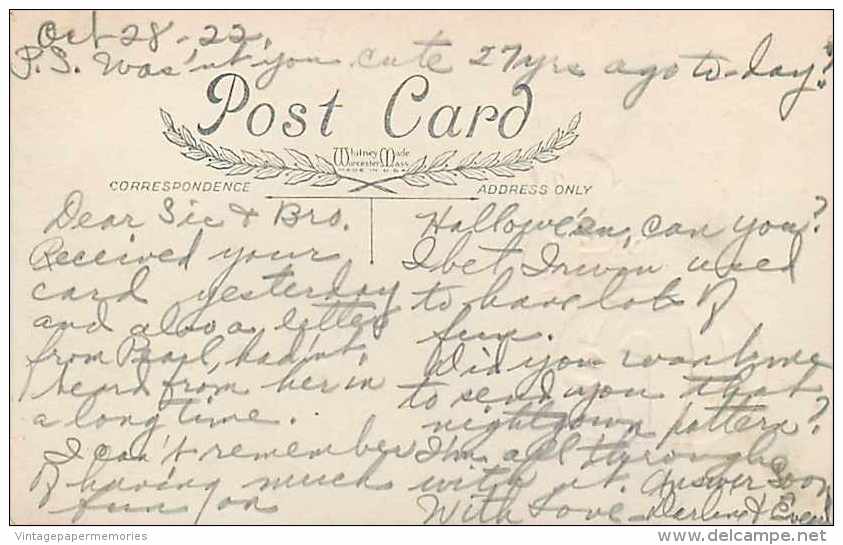 Oct-28-22.
P.S. Was'nt you cute 27 yrs ago to-day?
Post Card
Whitney Made
Worcester, Mass
MADE IN U.S.A.
CORRESPONDENCE
ADDRESS ONLY
Dear Sis & Bro.
Received your
card yesterday
and also a letter
from Pearl, had'nt
heard from her in
a long time.
I can't remember
of having much
fun on
Hallowe'en, can you?
I bet Irwin used
to have lots of
fun.
Did you want me
to send you that
nightgown pattern?
I'm all through
with it. Answer Soon
With Love - Darline &
Vintagepapermemories
delcampe.net